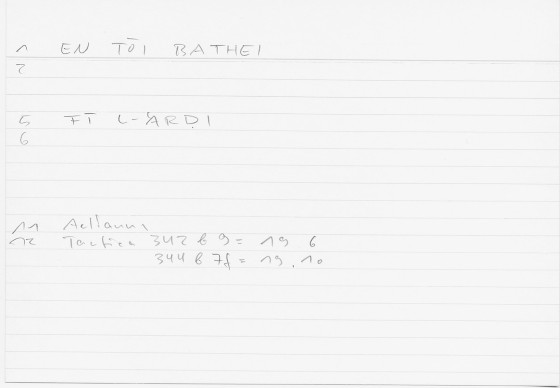 1 EN TŌI BATHEI
2
5 FĪ L-ʾARḌI
6
11 Aelianus
12 Tactica 342 b 9 = 19 6
344 b 7f = 19.10